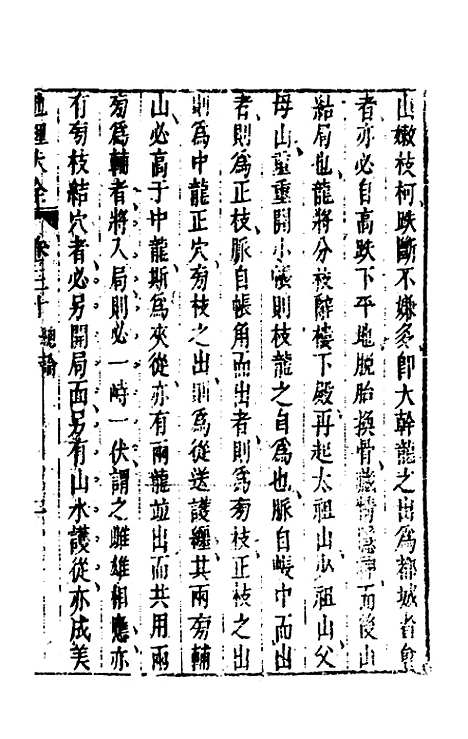 山嫩枝柯跌斷不嫌多即大幹龍之出為都城省會
者亦必自高跌下平地脫胎換骨藏精隱神而後山
結局也龍將分枝辭樓下殿再起太祖山少祖山父
母山重重開小帳則枝龍之自為也脈自帳中而出
者則為正枝脈自帳角而出者則為旁枝正枝之出
則為中龍正穴旁枝之出則為從送護纏其兩旁輔
山必高于中龍斯為夾從亦有兩龍並出而共用兩
旁為輔者將入局則必一峙一伏謂之雌雄相應亦
有旁枝結穴者必另開局面另有山水護從亦成美
地理大全 卷二十 總論